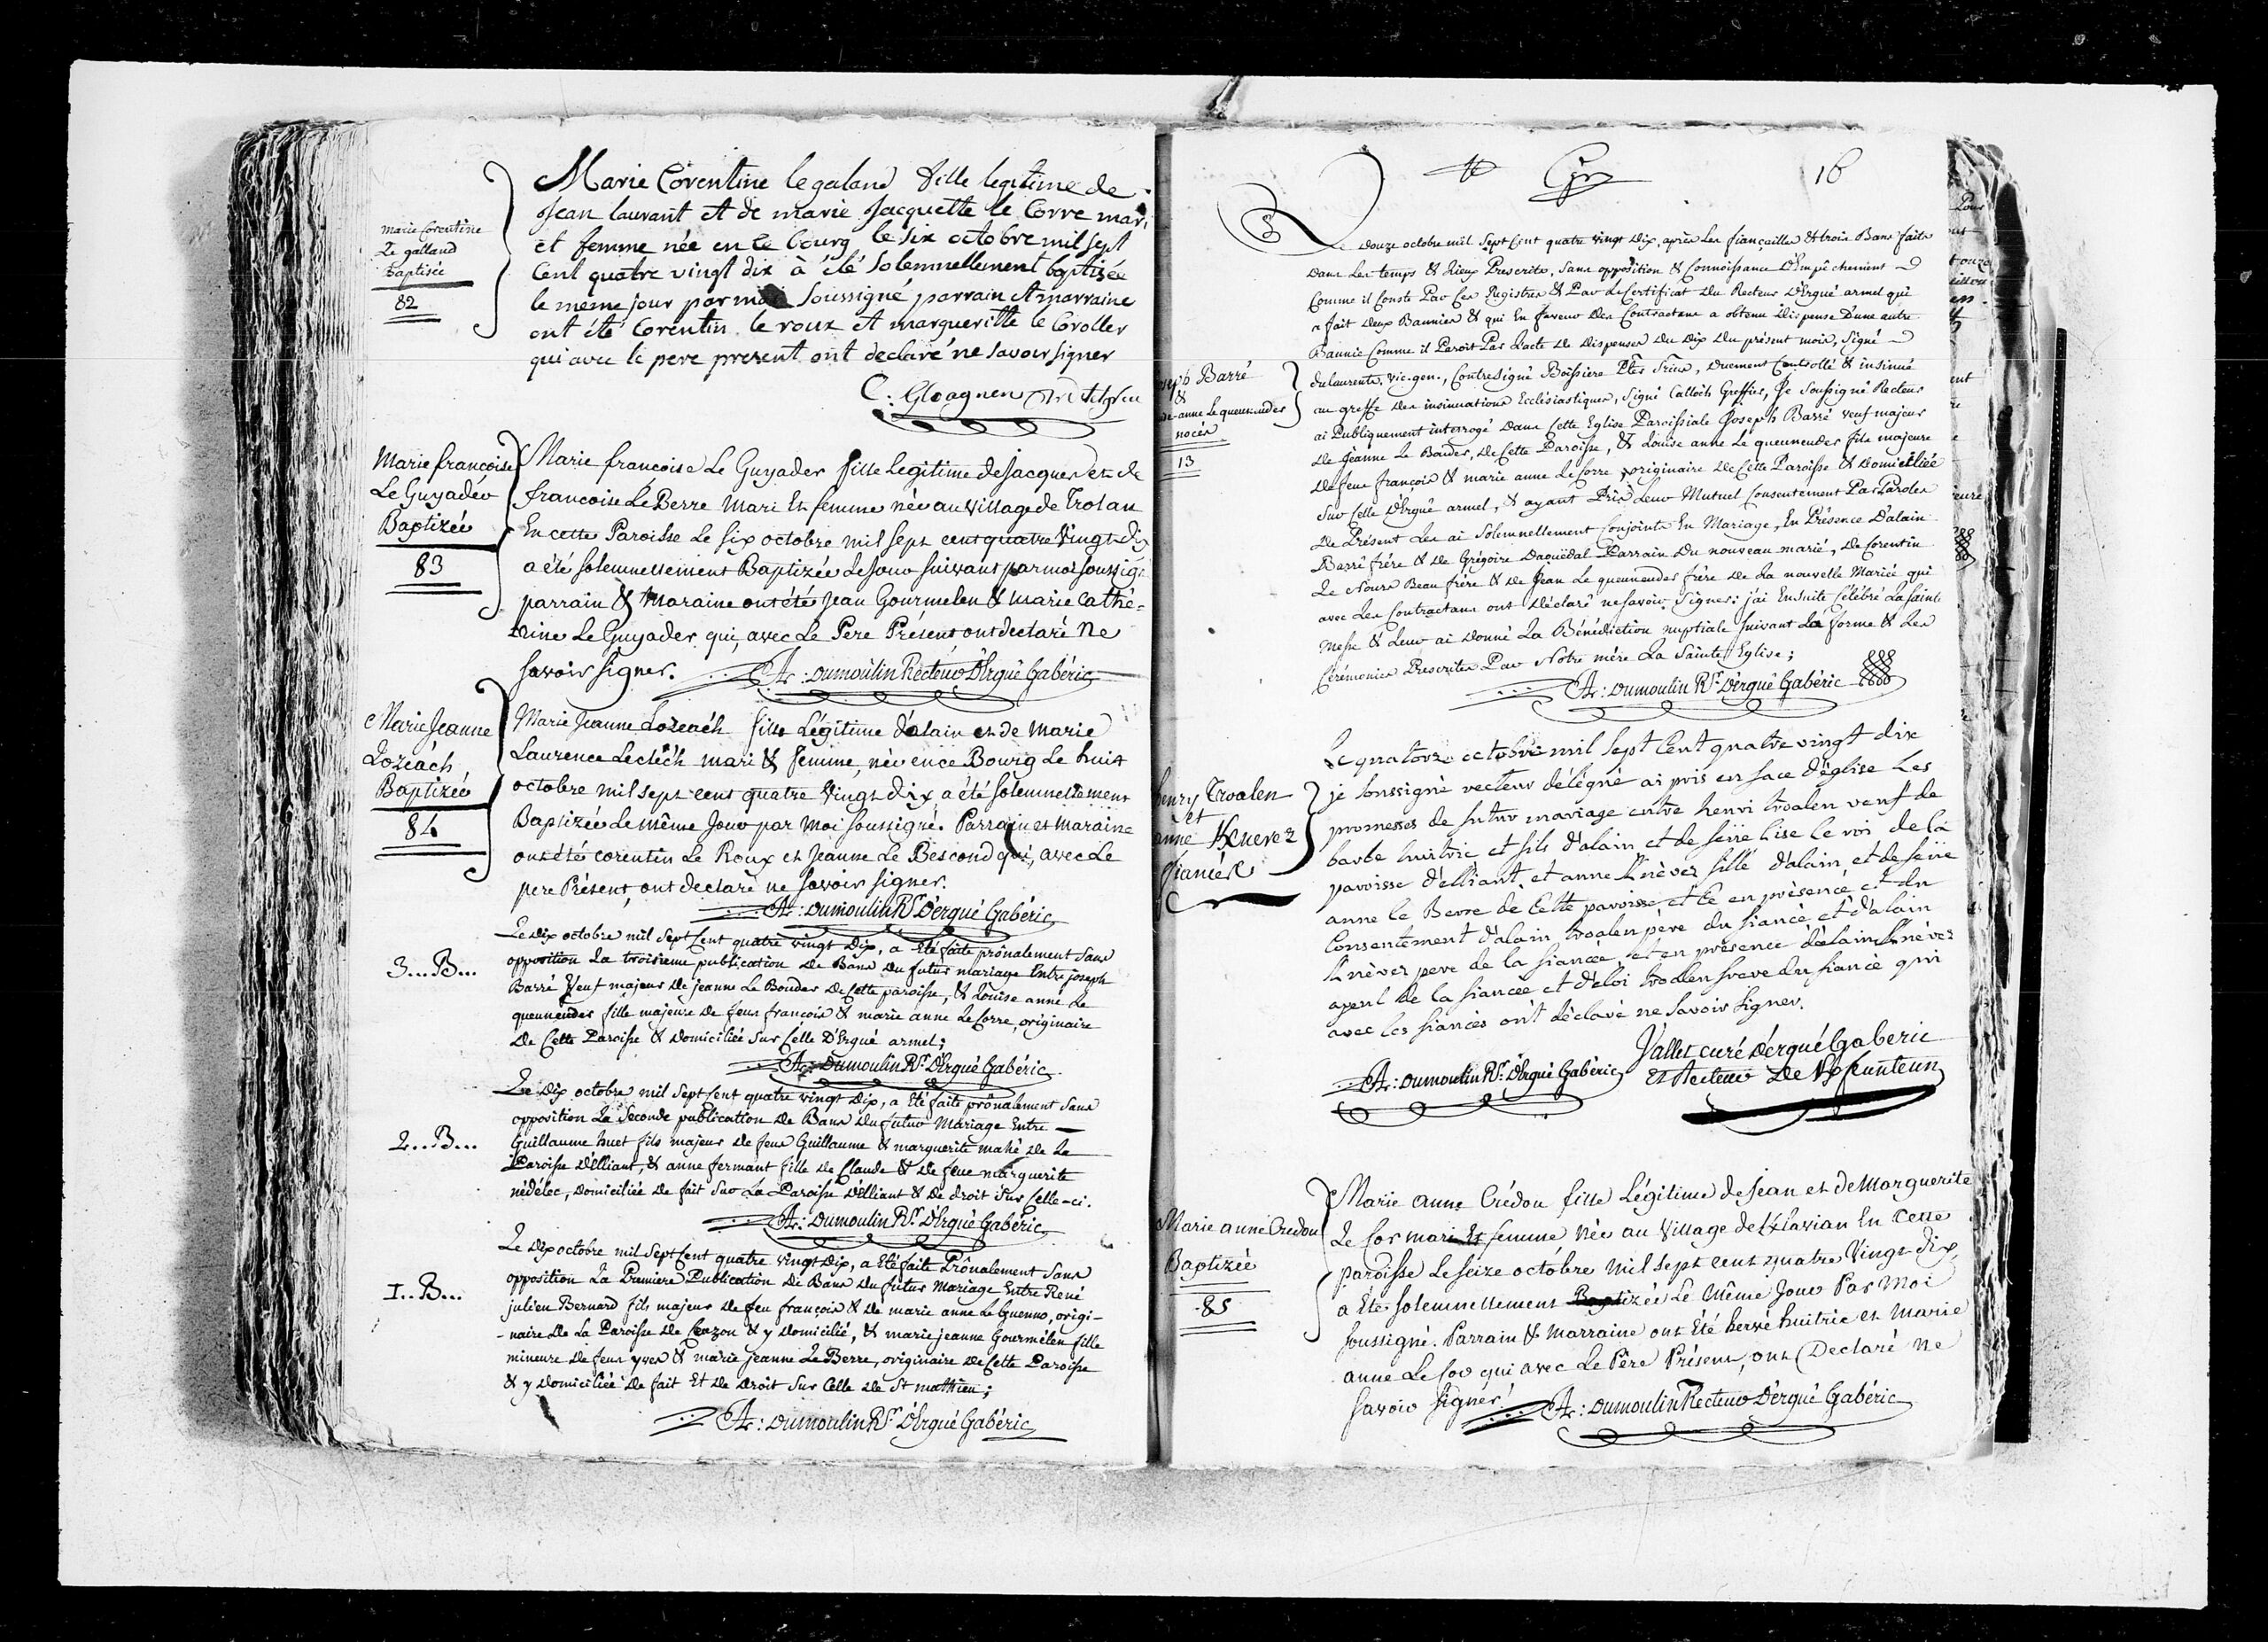 Marie Corentine
Le galland
Baptisée
82
Marie Corentine le galand fille legitime de
Jean laurant et de marie Jacquette le Corre mari
et femme née en ce bourg le six octobre mil sept
Cent quatre vingt dix à été solemnellement baptisée
le meme jour par moi soussigné parrain et marraine
ont été Corentin le roux et margueritte le Coroller
qui avec le pere present ont declaré ne savoir signer
C: Gloaguen
Marie françoise
Le Guyader
Baptizée
83
Marie françoise Le Guyader fille legitime de Jacques et de
françoise Le Berre Mari et femme née au village de Trolan
En cette Paroisse Le six octobre mil sept cent quatre vingt dix
a été solemnellement Baptizée Le Jour suivant par moi soussigé
parrain & Maraine ont étés Jean Gourmelen & Marie Cathé-
rine Le Guyader qui, avec Le Pere Présent ont declaré Ne
savoir signer. A: Dumoulin Recteur D'Ergué Gabéric
Marie Jeanne
Lozeách
Baptizée
84
Marie Jeanne Lozeách fille Légitime d'alain et de Marie
Laurence Le cléc'h mari & femme, née en ce Bourg Le huit
octobre mil sept cent quatre vingt dix a été solemnellement
Baptizée Le même Jour par Moi soussigné. Parrain et Maraine
ont été corentin Le Roux et Jeanne Le Bescond qui, avec Le
pere Présent, ont declaré ne savoir signer.
A: Dumoulin Rr. D'Ergué Gabéric
3...B...
Le Dix octobre mil sept Cent quatre vingt Dix, a Eté faite prônalement sans
opposition La troisieme publication De Bans Du futur mariage Entre joseph
Barré Veuf majeur De jeanne Le Bouder De Cette paroisse, & Louise anne Le
queunéuder fille majeure De feus françois & marie anne Le Corre, originaire
De Cette Paroisse & Domiciliée sur Célle D'Ergué armel;
A: Dumoulin Rr. D'Ergué Gabéric
2...B...
Le Dix octobre mil sept Cent quatre vingt Dix, a Eté faite prônalement sans
opposition La Seconde publication De Bans Du futur Mariage Entre
Guillaume huet fils majeur De feus Guillaume & marguerite mahé De La
Paroisse D'Elliant, & anne fermant fille De Claude & De feue marguerite
nédélec, Domiciliée De fait sur La Paroisse D'Elliant & De droit sur Celle-ci.
A: Dumoulin Rr. D'Ergué Gabéric
I..B...
Le Dix octobre mil Sept Cent quatre vingt Dix, a Eté faite Prônalement sans
opposition La Premiere Publication De Bans Du futur Mariage Entre René
julien Bernard fils majeur De feu françois & De marie anne Le Guenno, origi-
-naire De La Paroisse De Crozon & y Domicilié, & marie jeanne Gourmélen fille
mineure De feus yves & marie jeanne Le Berre, originaire De Cette Paroisse
& y Domiciliée De fait Et De Droit sur Celle De St mathieu;
A: Dumoulin Rr. D'Ergué Gabéric
16
oseph Barré
&
anne Le queuneuder
nocés
13
Le Douze octobre mil Sept Cent quatre vingt Dix, après Les fiançailles & trois Bans faits
Dans Les temps & Lieux Prescrits, sans opposition & Connoissance D'Empêchement
Comme il Conste Par Ces Registres & Par Le Certificat Du Recteur D'Ergué armel qui
a fait Deux Bannies & qui En faveur Des Contractans a obtenu Dispense D'une autre
Bannie Comme il Paroit Par L'acte De Dispenses Du Dix Du présent mois, Signé
dulaurents. vic. gen., Contresigné Boissiere Ptre Srius, Duement Controllé & insinué
au greffe Des insinuations Ecclésiastiques, Signé Calloc'h Greffier, Je Soussigné Recteur
ai Publiquement interrogé Dans Cette Eglise Paroissiale Joseph Barré veuf majeur
De Jeanne Le Bouder, De Cette Paroisse, & Louise anne Le queuneuder fille majeure
De feus françois & marie anne Le Corre, originaire De Cette Paroisse & Domiciliée
sur Celle D'Ergué armel, & ayant Pris Leur Mutuel Consentement Par Paroles
De Présent Les ai Solemnellement Conjoints En Mariage, En Présence D'alain
Barré frére & De Grégoire Daoüédal Parrain Du nouveau marié, De Corentin
Le Nours Beau frére & De Jean Le queuneuder frére De La nouvelle Mariée qui
avec Les Contractans ont Déclaré ne savoir Signer: j'ai Ensuite Célébré La sainte
messe & Leur ai Donné La Bénédiction nuptiale suivant La forme & Les
Cérémonies Prescrites Par Notre mére La Sainte Eglise;
A: Dumoulin Rr. D'Ergué Gabéric
henry Troalen
et
anne Knevez
fiancés
Le quatorze octobre mil sept Cent quatre vingt dix
je soussigné recteur délégué ai pris en face d'église Les
promesses de futur mariage entre henri troalen veuf de
barbe huitric et fils d'alain et de feüe Lise le roi de la
paroisse d'elliant, et anne Knévez fille d'alain et de feüe
anne le Berre de Cette paroisse, et Ce en présence et du
Consentement d'alain troalen pére du fiancé et d'alain
Knévez pere de la fiancée, et en présence d'alain Knévez
ayeul de la fiancée et d'éloi troalen frere du fiancé qui
avec les fiancés ont déclaré ne savoir signer.
Vallet curé d'ergué Gaberic
A: Dumoulin Rr. D'Ergué Gabéric Et Recteur De Kfeunteun
Marie anne Credou
Baptizée
85
Marie anne Crédou fille Légitime de Jean et de Marguerite
Le Cor mari Et femme Née au village de Klavian En Cette
paroisse Le seize octobre mil sept cent quatre vingt dix,
a Eté solemnellement Baptizée Le Même Jour Par Moi
soussigné. Parrain & Marraine ont Eté hervé huitric et Marie
anne Le Cor qui avec Le Pére Présent, ont Declaré ne
savoir signer. A: Dumoulin Recteur D'Ergué Gabéric